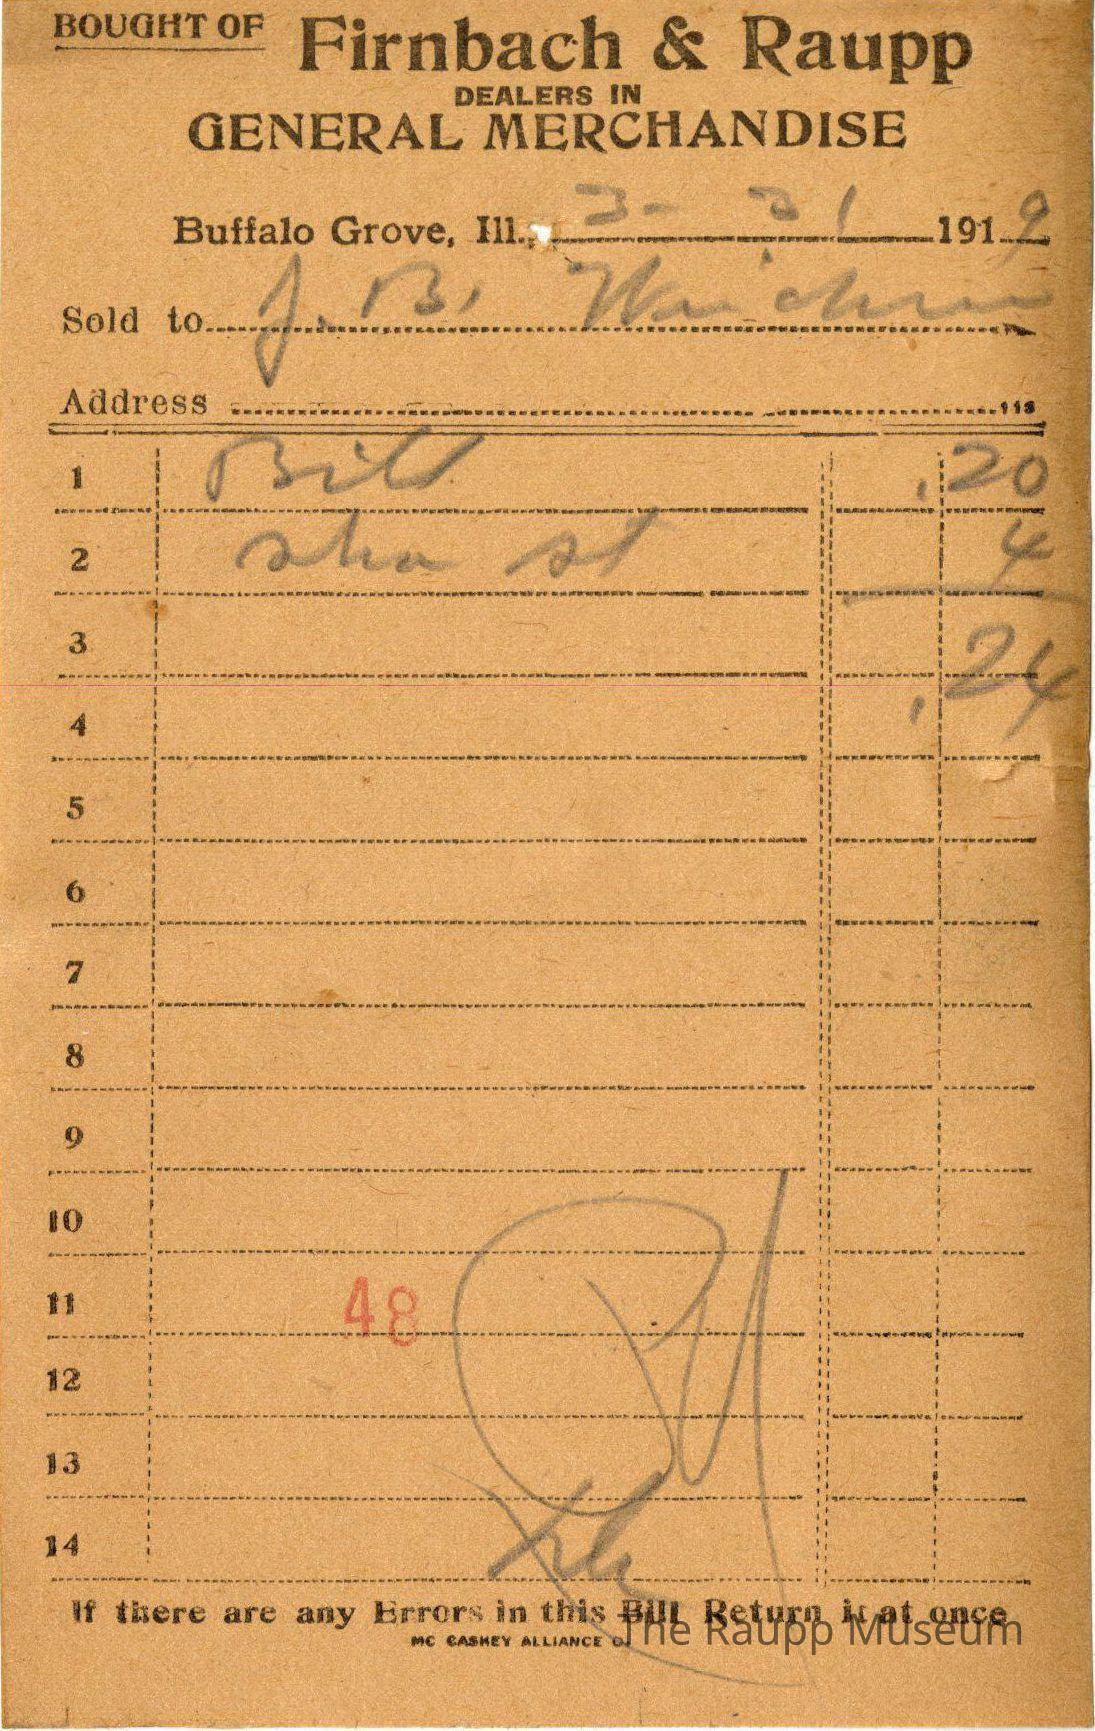 BOUGHT OF Firnbach & Raupp
DEALERS IN
GENERAL MERCHANDISE
Buffalo Grove, Ill., 3- 31 1919
Sold to J. B.
Address
1 .20
2 4
3 .24
4
5
6
7
8
9
10
11 48
12
13
14
If there are any Errors in this Bill Return it at once
MC CASKEY ALLIANCE O.
The Raupp Museum